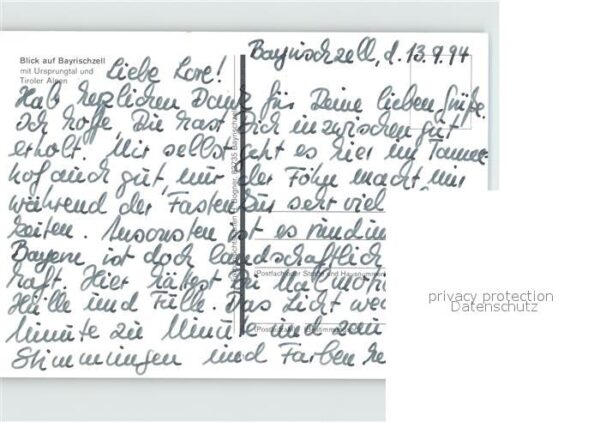 Blick auf Bayrischzell
mit Ursprungtal und
Tiroler Alpen
Bayrischzell, d. 13.9.94
Liebe Lore!
Hab herzlichen Dank für Deine lieben Grüße.
Ich hoffe, Du hast Dich inzwischen gut
erholt. Mir selbst geht es hier im Tanner-
hof auch gut, nur der Föhn macht mir
während der Fastenkur sehr viel
keiten. Ansonsten ist es rundum
Bayern ist doch landschaftlich
haft. Hier hättest Du Malmotive
Hülle und Fülle. Das Licht wech
Minute zu Minute und zau
Stimmungen und Farben he
(Postfach oder Straße und Hausnummer)
(Postleitzahl) (Bestimmungsort)
privacy protection
Datenschutz